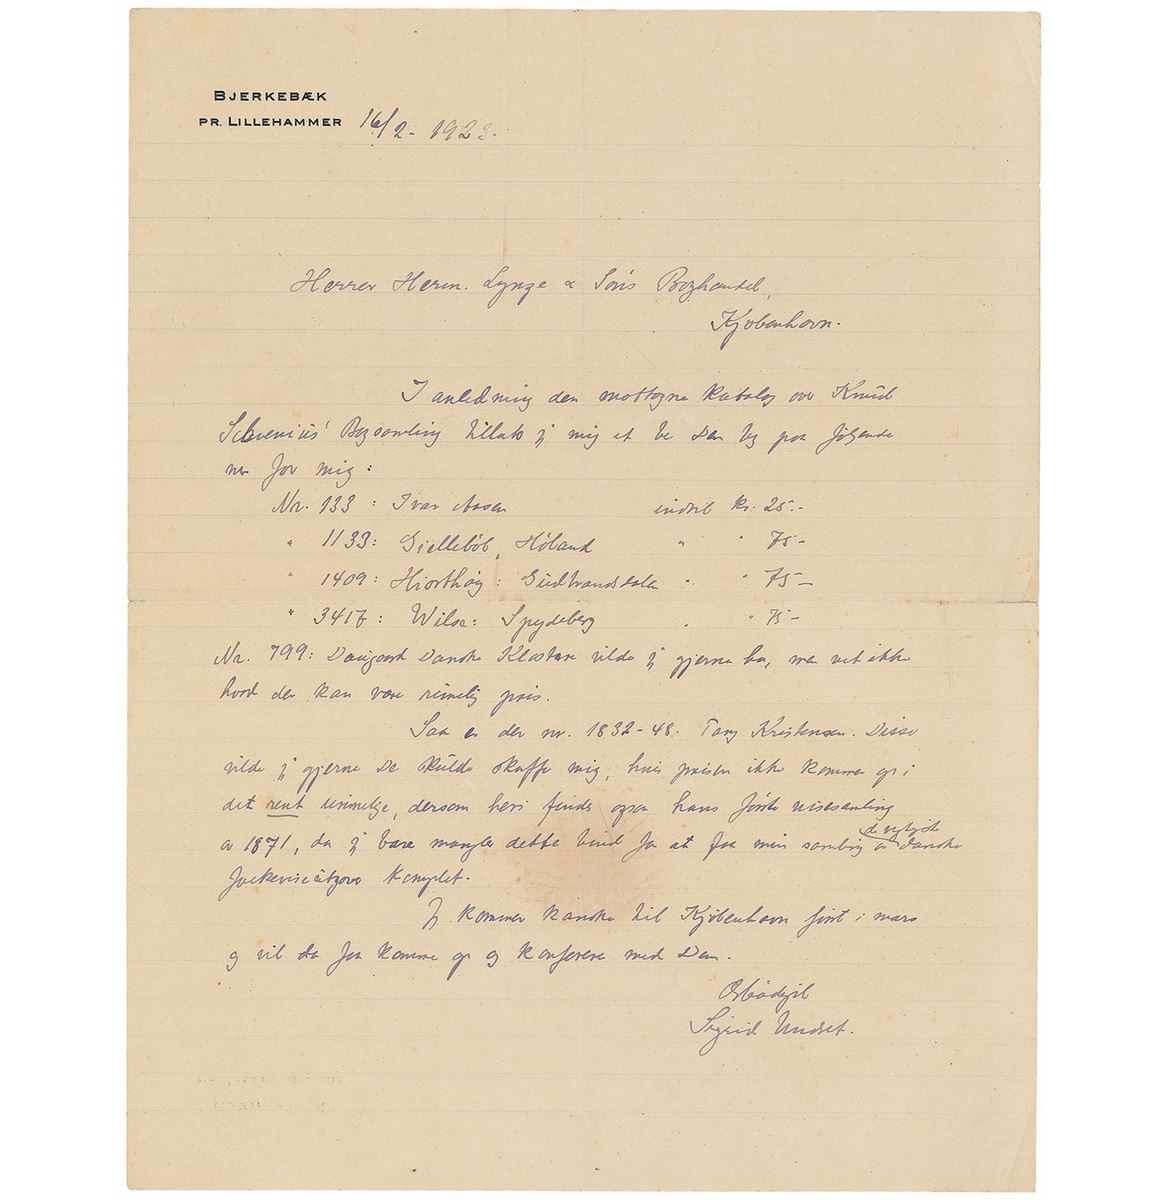 BJERKEBÆK
PR. LILLEHAMMER 16/2 - 1923.
Herrer Herm. Lynge & Søns Boghandel,
Kjøbenhavn.
I anledning den mottagne katalog over Knud
Bogsamling tillater jeg mig at be Dem by paa følgende
nr for mig:
Nr. 133 : Ivar Aasen indtil kr. 25.-
" 1133: Giellebøl, Høland " " 75-
" 1409: Hiorthøy: Gudbrandsdalen " " 75-
" 3417: Wilse: Spydeberg " " 75-
Nr. 799: Daugaard Danske Klostre vilde jeg gjerne ha, men vet ikke
hvad der kan være rimelig pris.
Saa er der nr. 1832-48. Tang Kristensen. Disse
vilde jeg gjerne De skulde skaffe mig, hvis prisen ikke kommer op i
det rent urimelige, dersom heri findes ogsaa hans første visesamling
av 1871, da jeg bare mangler dette bind for at faa min samling av de vigtigste danske
folkeviseutgaver komplet.
Jeg kommer kanske til Kjøbenhavn først i mars
og vil da faa komme op og konferere med Dem.
Ærbødigst
Sigrid Undset.